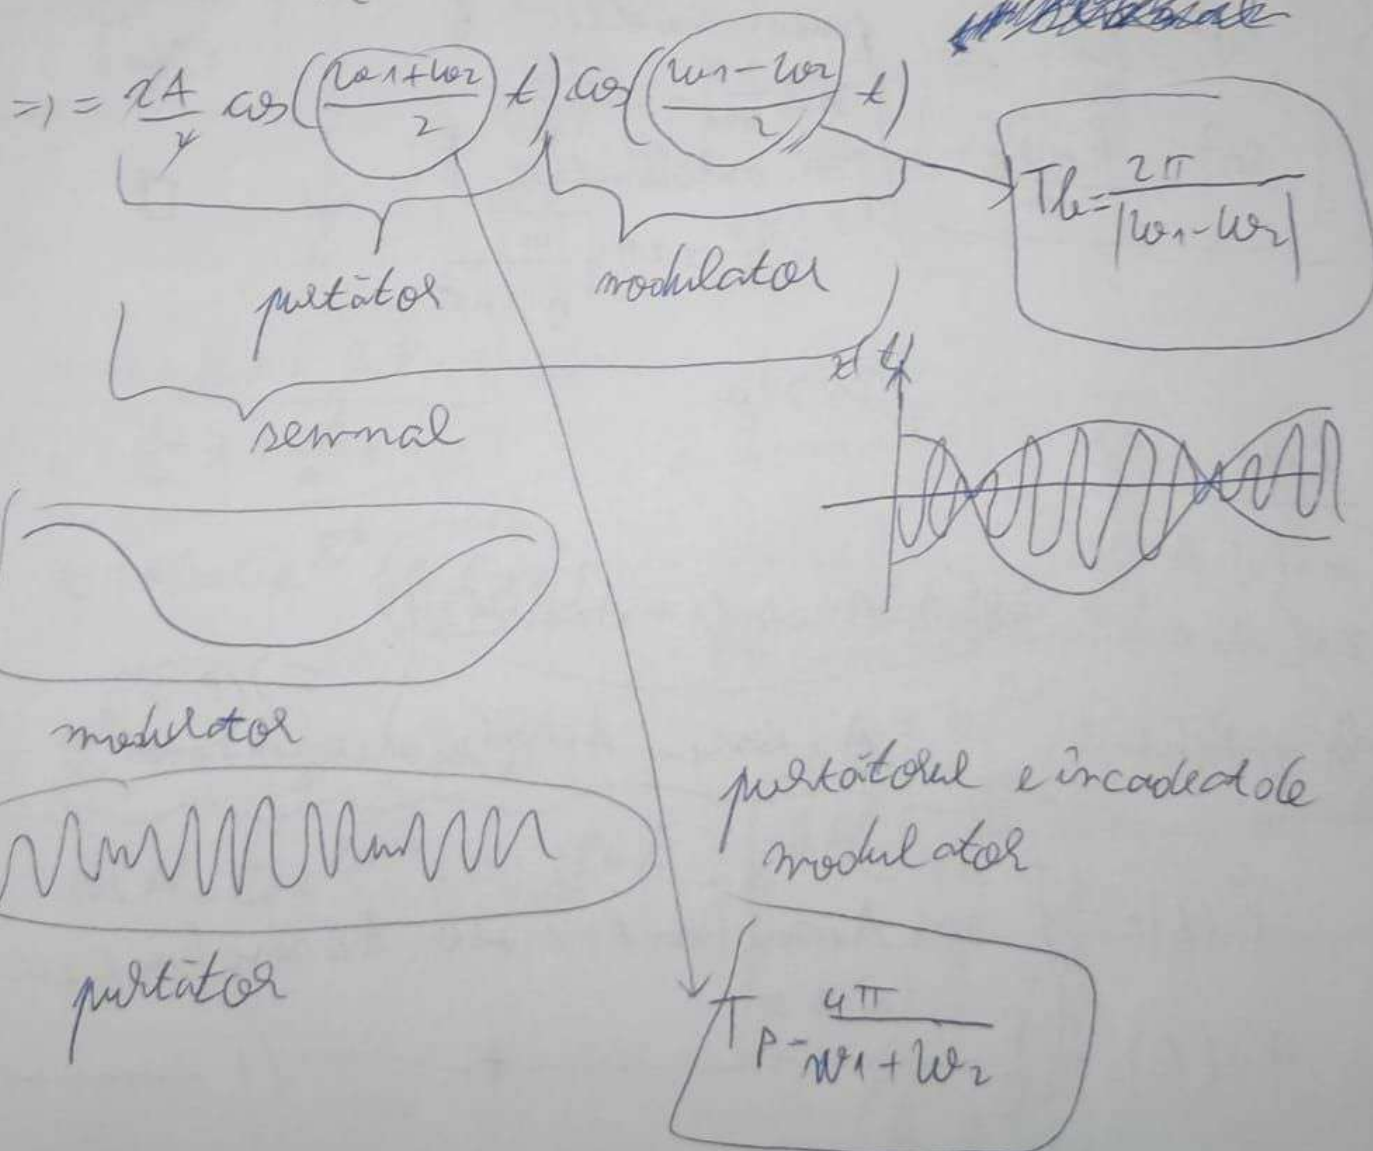 => = 2A cos((ω1+ω2)/2 t) cos((ω1-ω2)/2 t)
Tb = 2π/|ω1-ω2|
purtător modulator
semnal
modulator
purtătorul e încadrat de
modulator
purtător
Tp = 4π/ω1+ω2